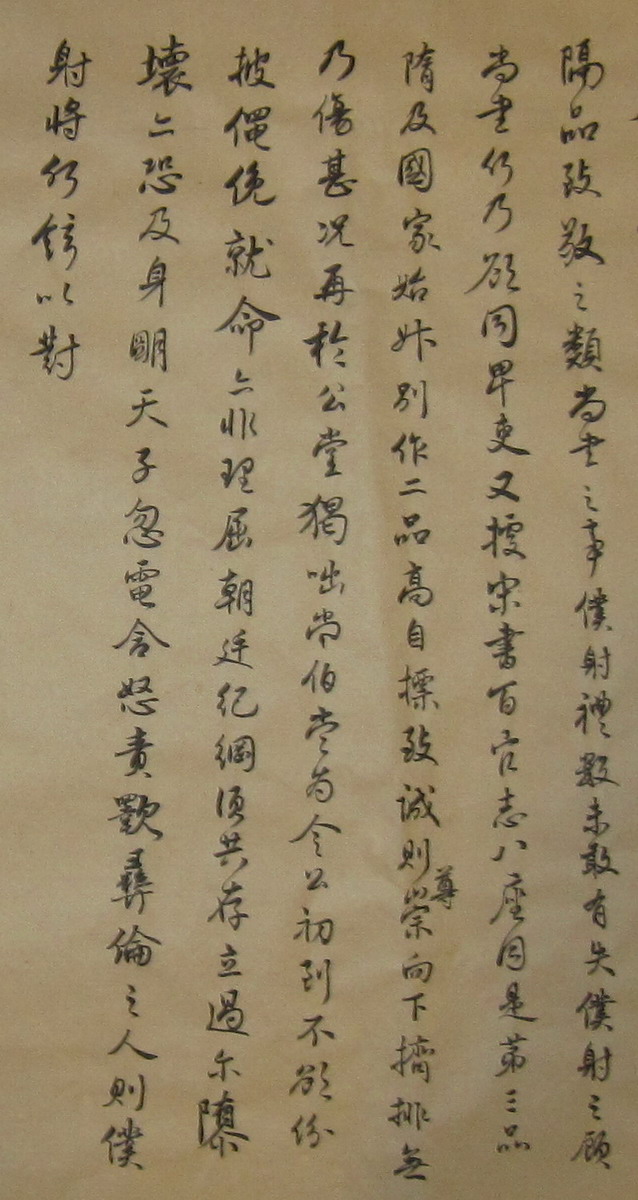 隔品致敬之類尚書之事僕射禮數未敢有失僕射之顧
尚書行乃欲同卑吏又據宋書百官志八座同是第三品
隋及國家始升別作二品高自摽致誠則尊崇向下擠排無
乃傷甚况再於公堂獨咄常伯當為令公初到不欲紛
披僶俛就命亦非理屈朝廷紀綱須共存立過尔隳
壞亦恐及身明天子忽電含怒責斁彝倫之人則僕
射將何辭以對